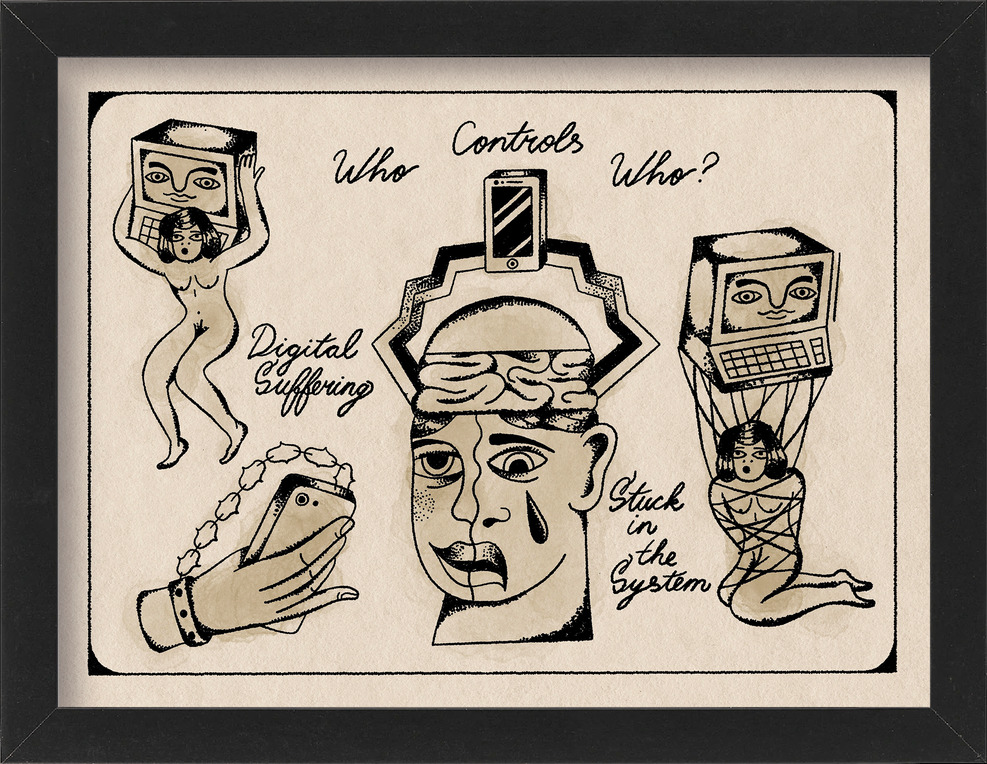 Who Controls Who?
Digital
Suffering
Stuck
in
the
System